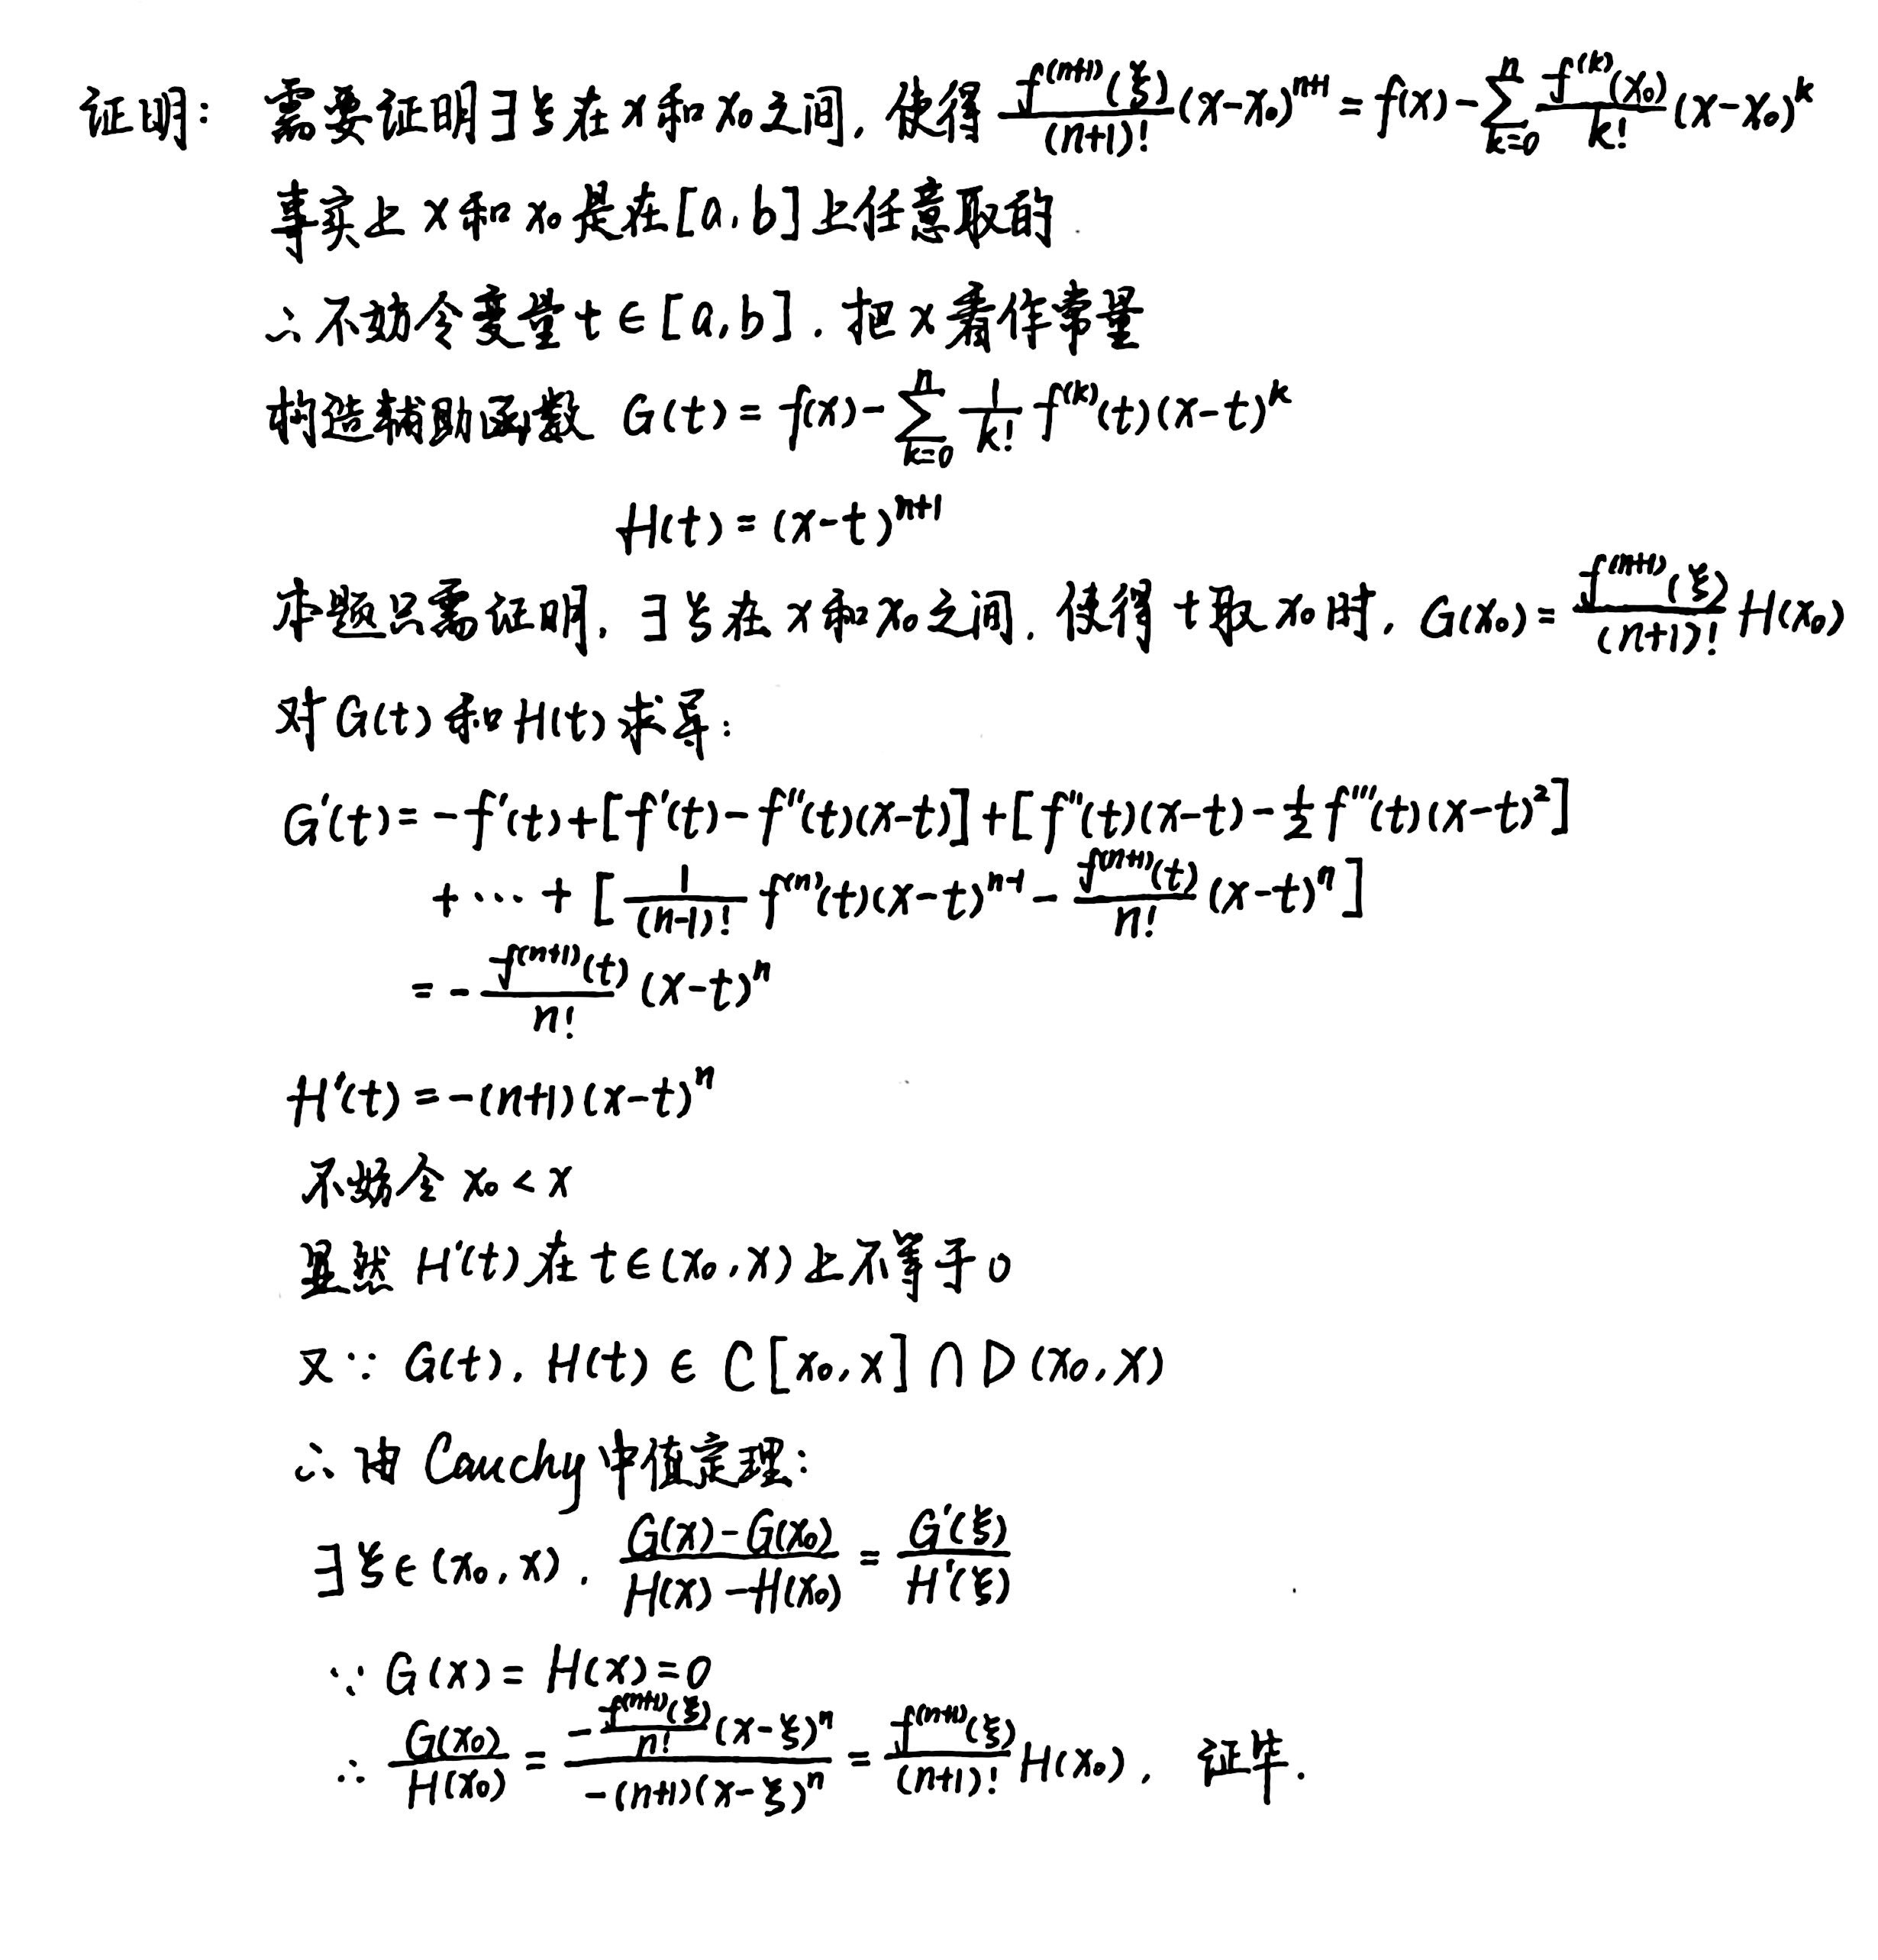 证明: 需要证明∃ξ在x和x₀之间, 使得 \frac{f^{(n+1)}(ξ)}{(n+1)!}(x-x₀)^{n+1} = f(x) - \sum_{k=0}^{n} \frac{f^{(k)}(x₀)}{k!}(x-x₀)^k
事实上x和x₀是在[a,b]上任意取的
∴不妨令变量t∈[a,b]. 把x看作常量
构造辅助函数 G(t) = f(x) - \sum_{k=0}^{n} \frac{1}{k!} f^{(k)}(t)(x-t)^k
H(t) = (x-t)^{n+1}
本题只需证明, ∃ξ在x和x₀之间. 使得t取x₀时, G(x₀) = \frac{f^{(n+1)}(ξ)}{(n+1)!} H(x₀)
对G(t)和H(t)求导:
G'(t) = -f'(t) + [f'(t) - f''(t)(x-t)] + [f''(t)(x-t) - \frac{1}{2} f'''(t)(x-t)^2]
+ ⋯ + [\frac{1}{(n-1)!} f^{(n)}(t)(x-t)^{n-1} - \frac{f^{(n+1)}(t)}{n!}(x-t)^n]
= -\frac{f^{(n+1)}(t)}{n!}(x-t)^n
H'(t) = -(n+1)(x-t)^n
不妨令x₀<x
显然H'(t)在t∈(x₀,x)上不等于0
又∵ G(t), H(t) ∈ C[x₀,x]∩D(x₀,x)
∴由Cauchy中值定理:
∃ξ∈(x₀,x). \frac{G(x)-G(x₀)}{H(x)-H(x₀)} = \frac{G'(ξ)}{H'(ξ)}
∵ G(x) = H(x) = 0
∴ \frac{G(x₀)}{H(x₀)} = \frac{-\frac{f^{(n+1)}(ξ)}{n!}(x-ξ)^n}{-(n+1)(x-ξ)^n} = \frac{f^{(n+1)}(ξ)}{(n+1)!} H(x₀), 证毕.